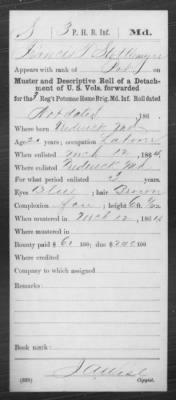 S | 3 P. H. B. Inf. | Md.
Francis
Appears with rank of
Muster and Descriptive Roll of a Detach-
ment of U. S. Vols. forwarded
for the 3 Reg't Potomac Home Brig. Md. Inf. Roll dated
Not dated, 186 .
Where born Frederick
Age 20 years; occupation Laborer
When enlisted Mch 12, 1864.
Where enlisted Frederick Md
For what period enlisted 3 years.
Eyes Blue; hair Brown
Complexion ; height ft. in.
When mustered in Mch 12, 1864
Where mustered in
Bounty paid $ 60 100; due $ 240 100
Where credited
Company to which assigned
Remarks:
Book mark:
(339)
Copyist.